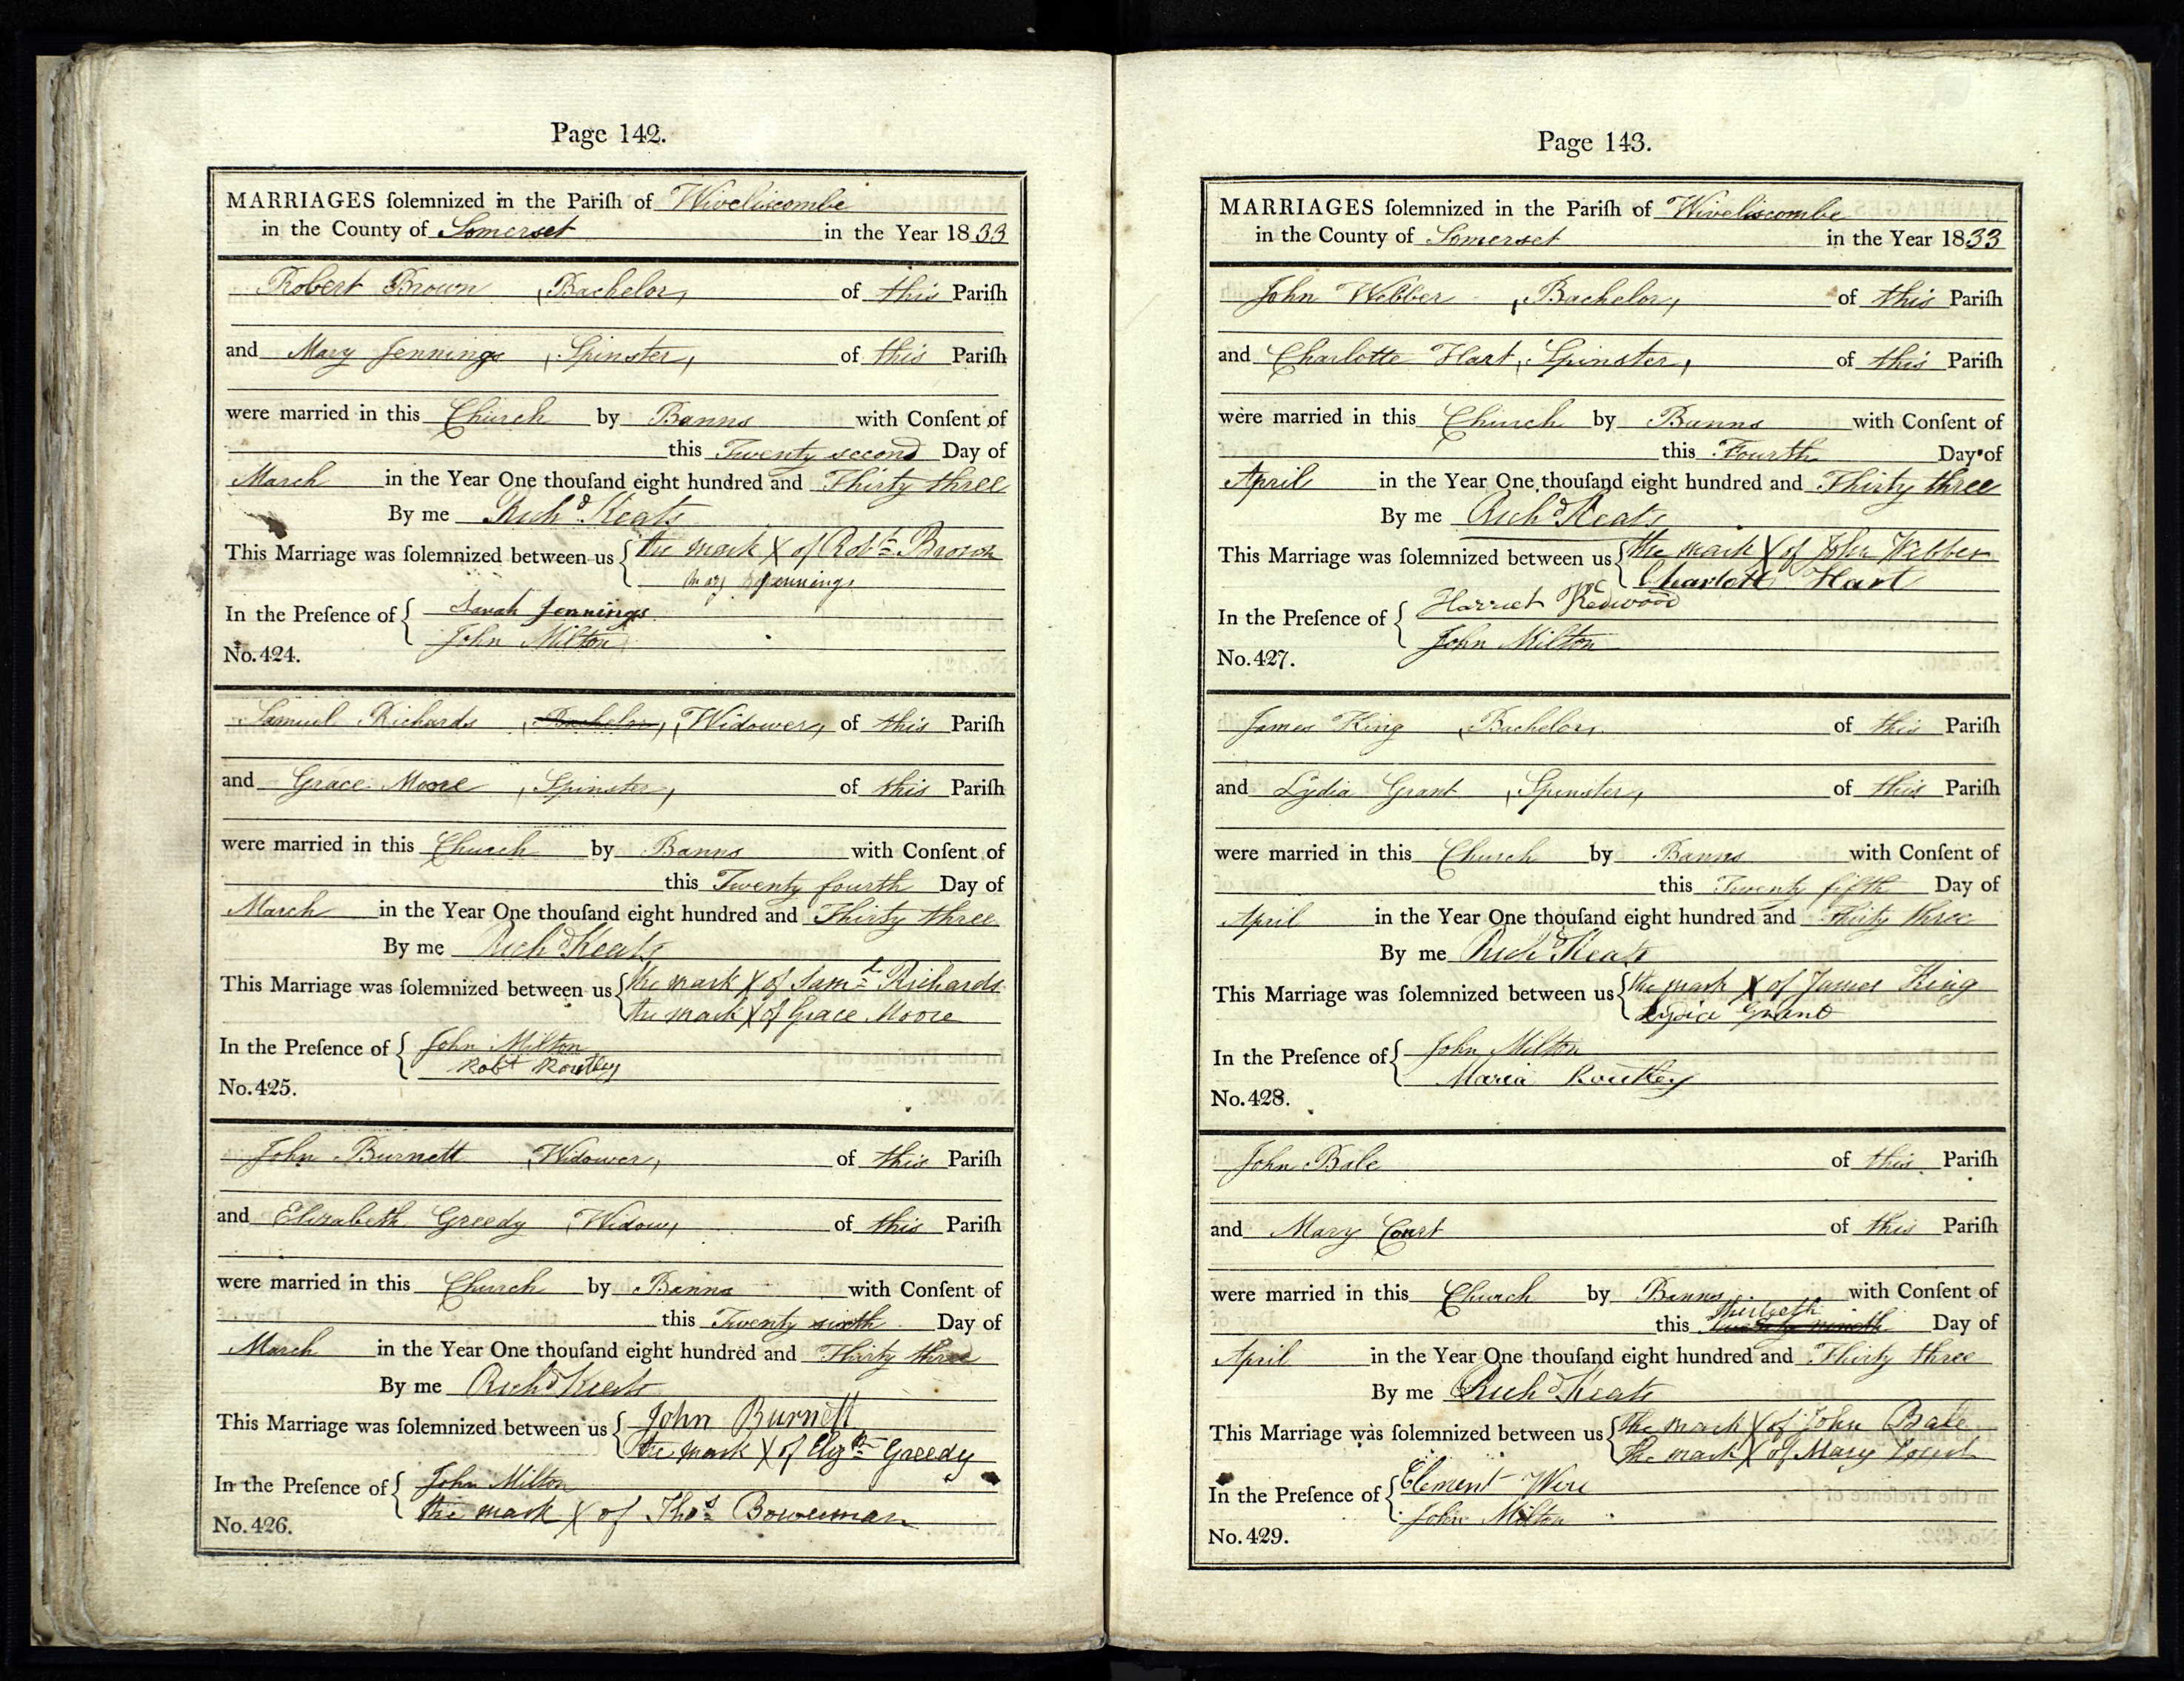 Page 142.
MARRIAGES ſolemnized in the Pariſh of Wiveliscombe
in the County of Somerset in the Year 1833
Robert Brown, Bachelor, of this Pariſh
and Mary Jennings, Spinster, of this Pariſh
were married in this Church by Banns with Conſent of
this Twenty second Day of
March in the Year One thouſand eight hundred and Thirty three
By me Richd Keats
This Marriage was ſolemnized between us { the mark X of Robt Brown
Mary Jennings
In the Preſence of { Sarah Jennings
John Milton
No. 424.
Samuel Richards, Bachelor, Widower, of this Pariſh
and Grace Moore, Spinster, of this Pariſh
were married in this Church by Banns with Conſent of
this Twenty fourth Day of
March in the Year One thouſand eight hundred and Thirty three
By me Richd Keats
This Marriage was ſolemnized between us { the mark X of Saml Richards
the mark X of Grace Moore
In the Preſence of { John Milton
Robt Routley
No. 425.
John Burnett, Widower, of this Pariſh
and Elizabeth Greedy, Widow, of this Pariſh
were married in this Church by Banns with Conſent of
this Twenty sixth Day of
March in the Year One thouſand eight hundred and Thirty three
By me Richd Keats
This Marriage was ſolemnized between us { John Burnett
the mark X of Elizth Greedy
In the Preſence of { John Milton
the mark X of Thos Bowerman
No. 426.
Page 143.
MARRIAGES ſolemnized in the Pariſh of Wiveliscombe
in the County of Somerset in the Year 1833
John Webber, Bachelor, of this Pariſh
and Charlotte Hart, Spinster, of this Pariſh
were married in this Church by Banns with Conſent of
this Fourth Day of
April in the Year One thouſand eight hundred and Thirty three
By me Richd Keats
This Marriage was ſolemnized between us { the mark X of John Webber
Charlott Hart
In the Preſence of { Harriet Redwood
John Milton
No. 427.
James King, Bachelor, of this Pariſh
and Lydia Grant, Spinster, of this Pariſh
were married in this Church by Banns with Conſent of
this Twenty fifth Day of
April in the Year One thouſand eight hundred and Thirty three
By me Richd Keats
This Marriage was ſolemnized between us { the mark X of James King
Lydia Grant
In the Preſence of { John Milton
Maria Routley
No. 428.
John Bale of this Pariſh
and Mary Court of this Pariſh
were married in this Church by Banns with Conſent of
Thirtieth
this Twenty nineth Day of
April in the Year One thouſand eight hundred and Thirty three
By me Richd Keats
This Marriage was ſolemnized between us { the mark X of John Bale
the mark X of Mary Court
In the Preſence of { Clement Were
John Milton
No. 429.